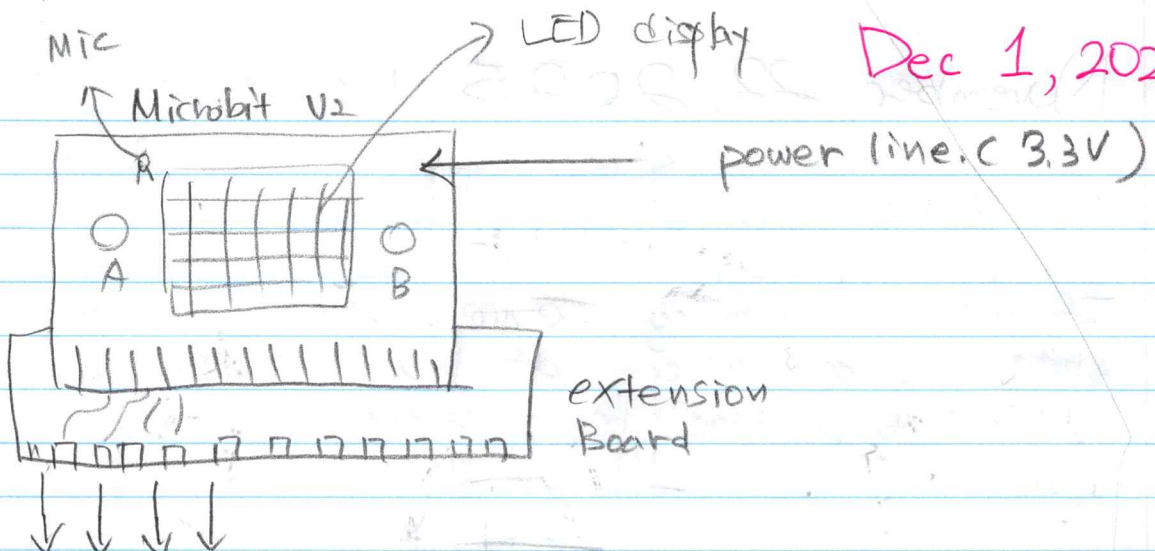 Mic
LED display
Dec 1, 202
Microbit V2
power line. ( 3.3V )
A
B
extension
Board